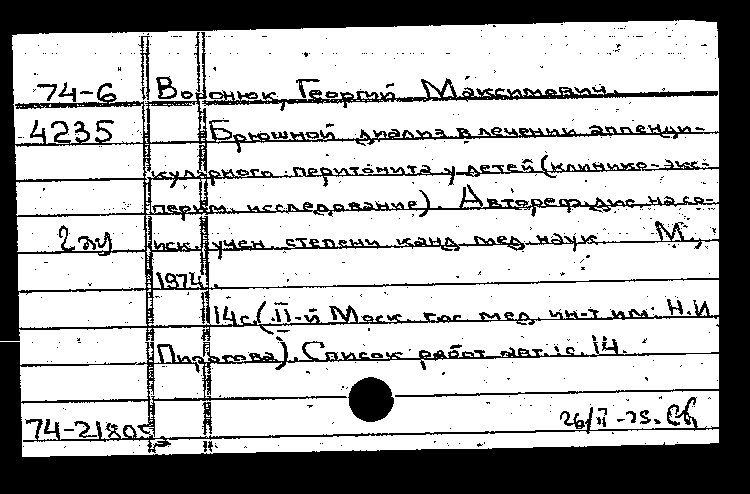 74-6 Воронюк, Георгий Максимович.
4235 Брюшной диализ в лечении аппенди-
кулярного перитонита у детей (клинико-экс-
перим. исследование). Автореф. дис. на со-
2 эку иск. учен. степени канд. мед. наук. М.,
1974.
14с. (II-й Моск. гос. мед. ин-т им. Н.И.
Пирогова). Список работ авт.: с. 14.
74-21805 26/II-75.